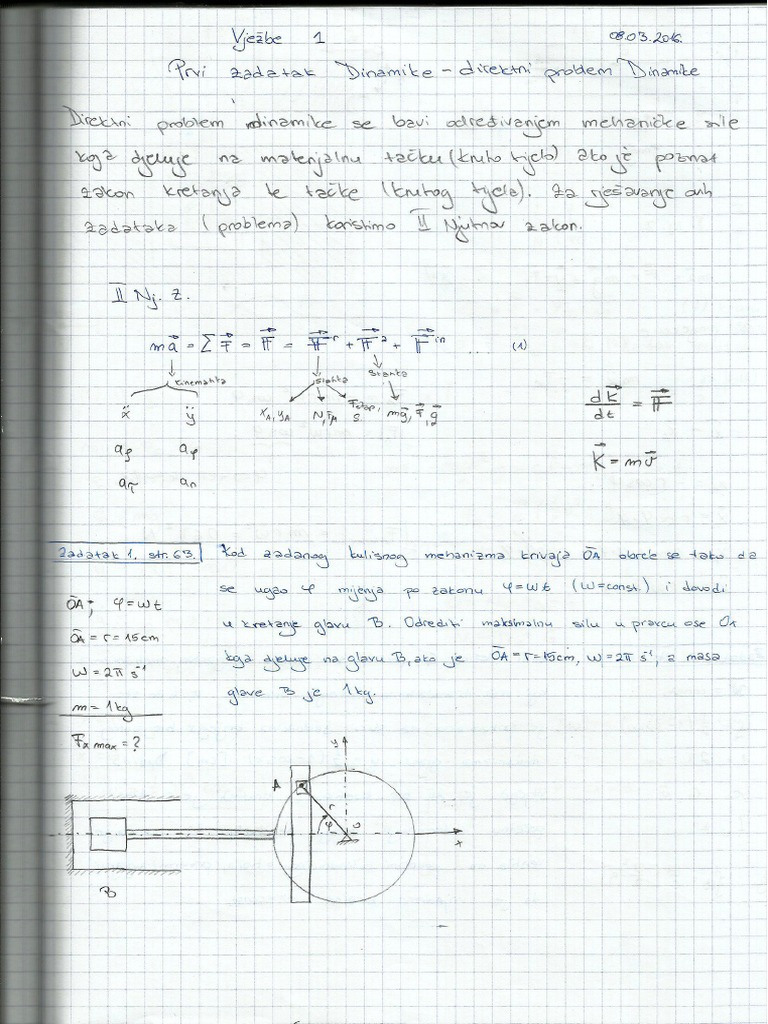 Vježbe 1 08.03.2016.
Prvi zadatak Dinamike - direktni problem Dinamike
Direktni problem dinamike se bavi određivanjem mehaničke sile
koja djeluje na materijalnu tačku (kruto tijelo) ako je poznat
zakon kretanja te tačke (krutog tijela). Za rješavanje ovih
zadataka (problema) koristimo II Njutnov zakon.
II Nj. Z.
ma⃗ = ∑ F⃗ = F⃗ = F⃗ʳ + F⃗ᵃ + F⃗ⁱⁿ .... (1)
kinematika statika statika
ẍ ÿ
x_A, y_A N, F_μ S mg⃗, F⃗, q⃗
dK⃗/dt = F⃗
a_ρ a_φ
K⃗ = mv⃗
a_τ a_n
Zadatak 1. str. 63. Kod zadanog kulisnog mehanizma krivaja OA obrće se tako da
se ugao φ mijenja po zakonu φ=ωt (ω=const.) i dovodi
u kretanje glavu B. Odrediti maksimalnu silu u pravcu ose Ox
koja djeluje na glavu B, ako je OA=r=15cm, ω=2π s⁻¹, a masa
glave B je 1kg.
OA; φ=ωt
OA = r = 15cm
ω = 2π s⁻¹
m = 1kg
Fx max = ?
y
A
r
φ
O
x
B